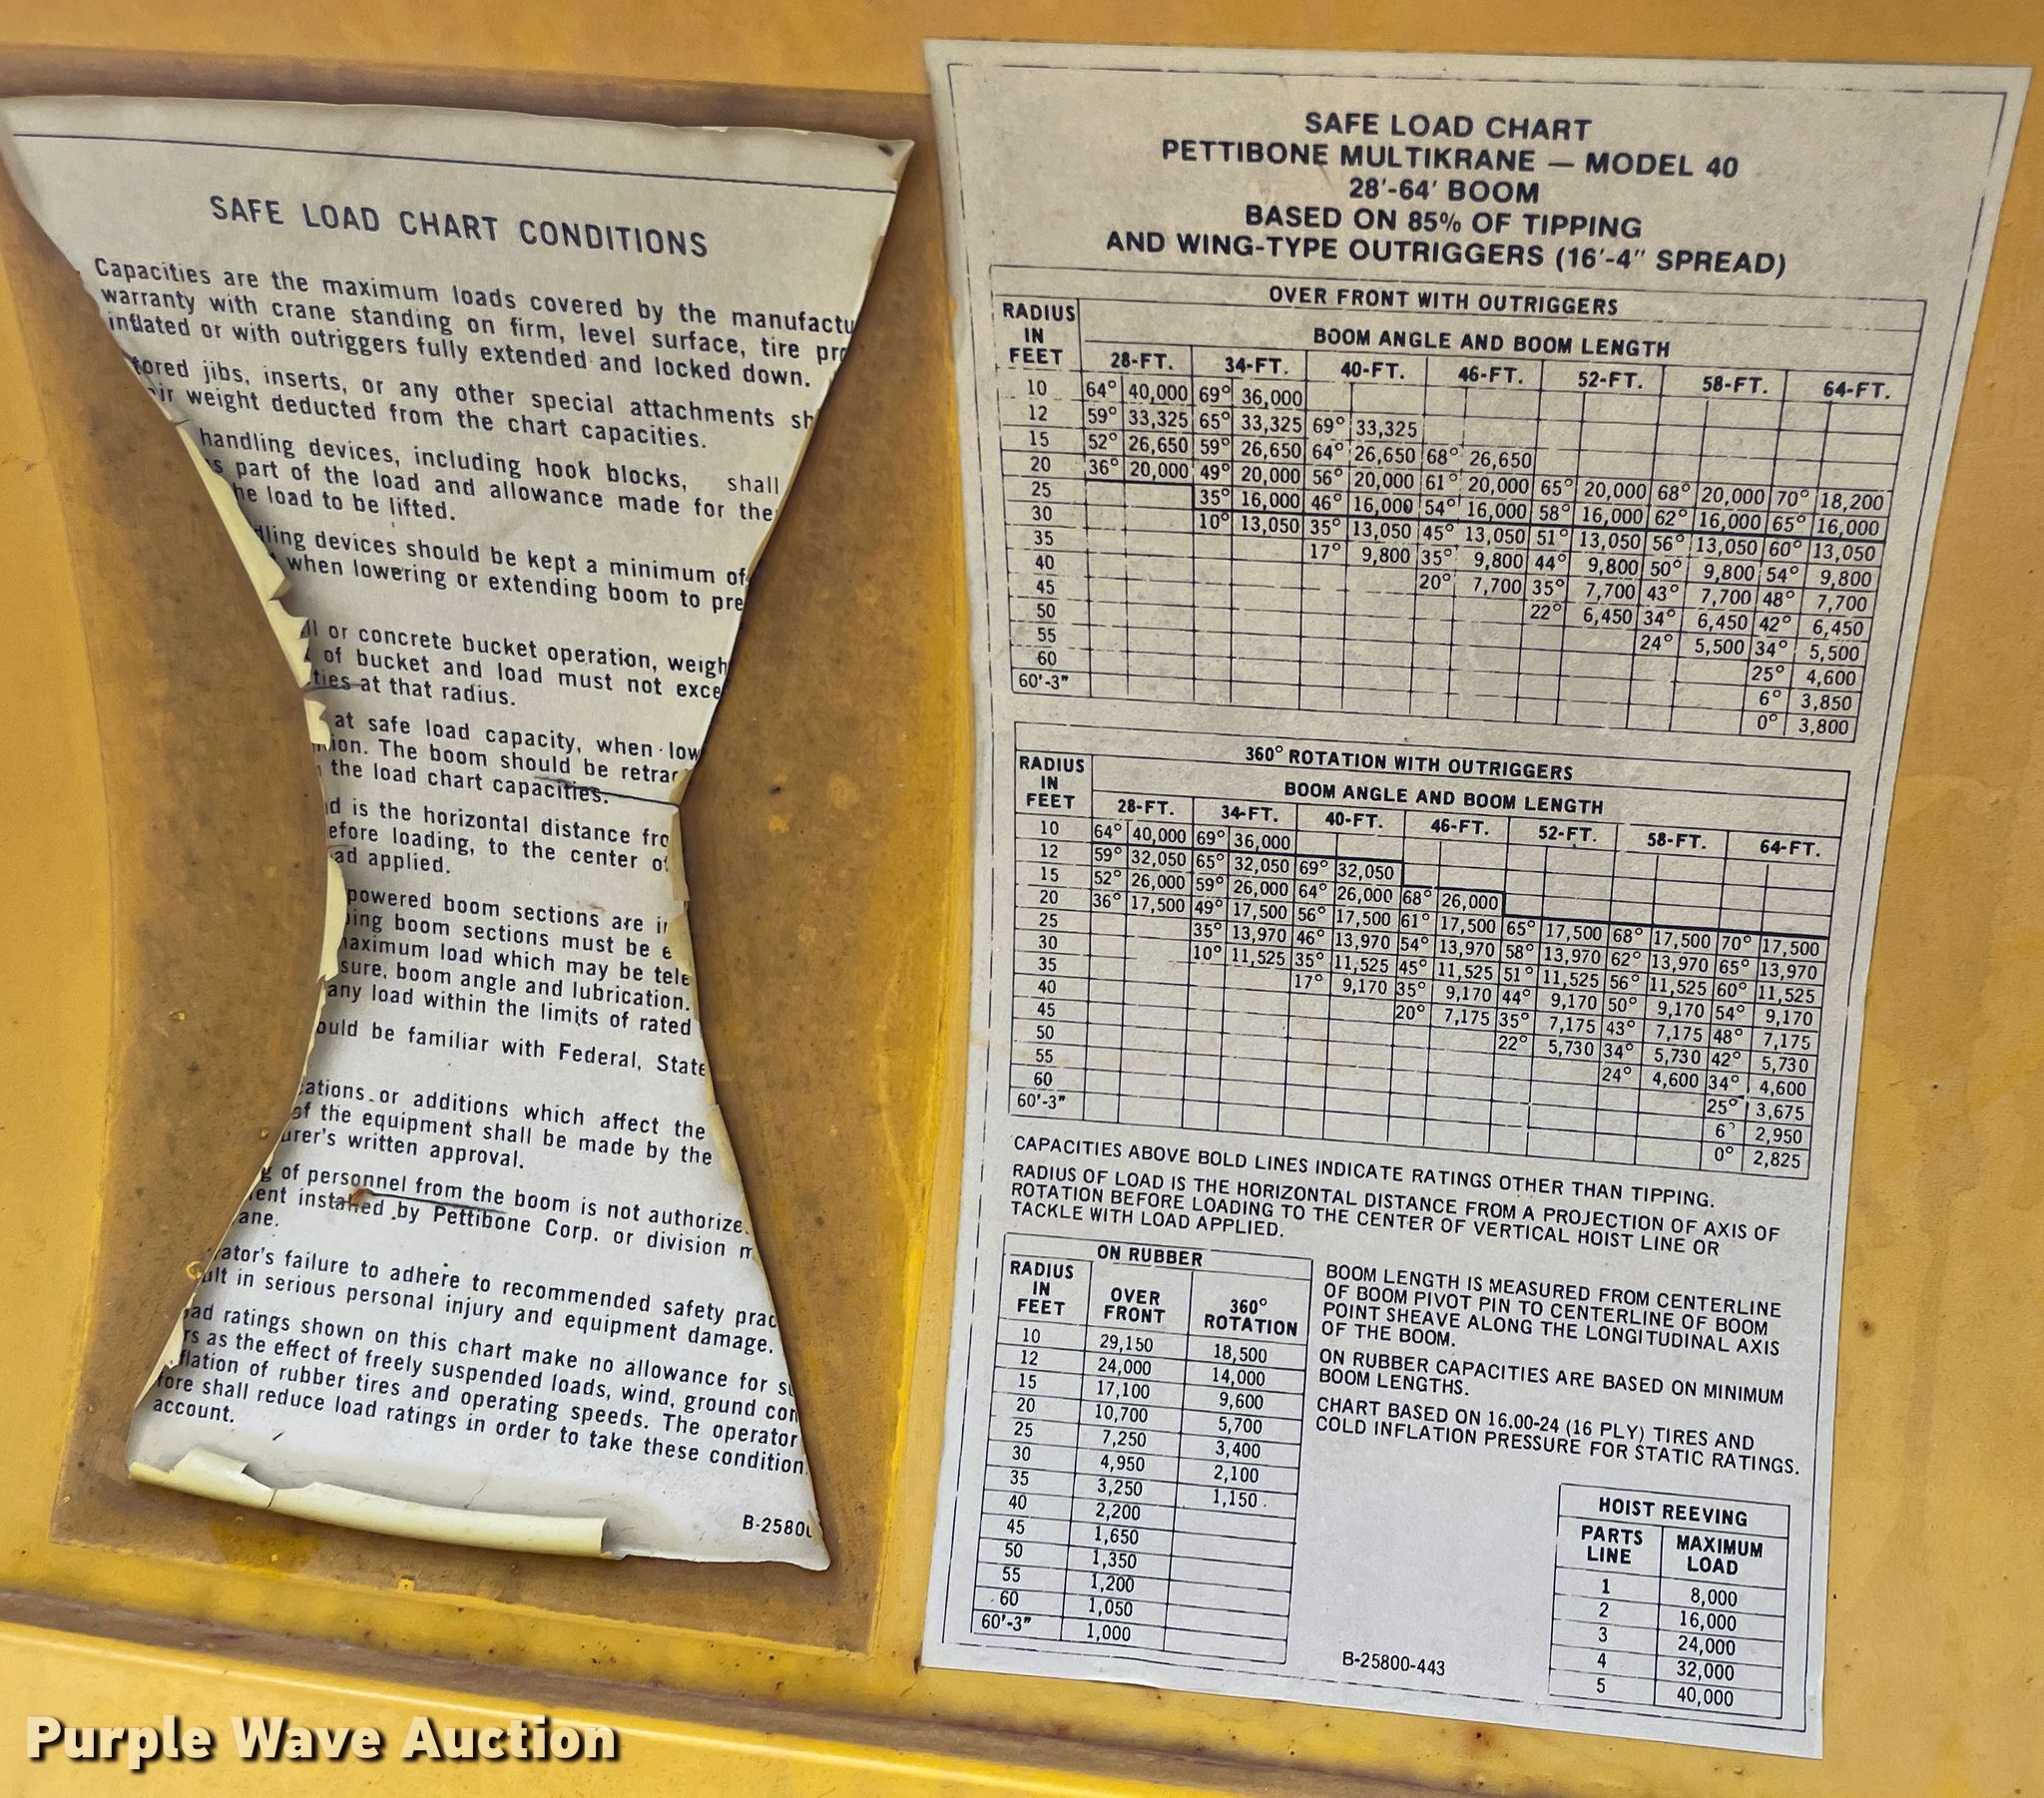 SAFE LOAD CHART CONDITIONS
Capacities are the maximum loads covered by the manufactu
warranty with crane standing on firm, level surface, tire pro
inflated or with outriggers fully extended and locked down.
tored jibs, inserts, or any other special attachments sh
ir weight deducted from the chart capacities.
handling devices, including hook blocks, shall
s part of the load and allowance made for the
he load to be lifted.
dling devices should be kept a minimum of
when lowering or extending boom to pre
ll or concrete bucket operation, weigh
of bucket and load must not exce
ties at that radius.
at safe load capacity, when low
ion. The boom should be retrac
the load chart capacities.
d is the horizontal distance fro
efore loading, to the center of
ad applied.
powered boom sections are in
ing boom sections must be e
aximum load which may be tele
sure, boom angle and lubrication.
any load within the limits of rated
ould be familiar with Federal, State
ations or additions which affect the
of the equipment shall be made by the
urer's written approval.
g of personnel from the boom is not authorize
ent installed by Pettibone Corp. or division m
ane.
ator's failure to adhere to recommended safety prac
ult in serious personal injury and equipment damage.
ad ratings shown on this chart make no allowance for su
rs as the effect of freely suspended loads, wind, ground con
flation of rubber tires and operating speeds. The operator
fore shall reduce load ratings in order to take these condition
account.
B-2580
SAFE LOAD CHART
PETTIBONE MULTIKRANE — MODEL 40
28'-64' BOOM
BASED ON 85% OF TIPPING
AND WING-TYPE OUTRIGGERS (16'-4" SPREAD)
OVER FRONT WITH OUTRIGGERS
RADIUS IN FEET BOOM ANGLE AND BOOM LENGTH
28-FT. 34-FT. 40-FT. 46-FT. 52-FT. 58-FT. 64-FT.
10 64° 40,000 69° 36,000
12 59° 33,325 65° 33,325 69° 33,325
15 52° 26,650 59° 26,650 64° 26,650 68° 26,650
20 36° 20,000 49° 20,000 56° 20,000 61° 20,000 65° 20,000 68° 20,000 70° 18,200
25 35° 16,000 46° 16,000 54° 16,000 58° 16,000 62° 16,000 65° 16,000
30 10° 13,050 35° 13,050 45° 13,050 51° 13,050 56° 13,050 60° 13,050
35 17° 9,800 35° 9,800 44° 9,800 50° 9,800 54° 9,800
40 20° 7,700 35° 7,700 43° 7,700 48° 7,700
45 22° 6,450 34° 6,450 42° 6,450
50 24° 5,500 34° 5,500
55 25° 4,600
60 6° 3,850
60'-3" 0° 3,800
360° ROTATION WITH OUTRIGGERS
RADIUS IN FEET BOOM ANGLE AND BOOM LENGTH
28-FT. 34-FT. 40-FT. 46-FT. 52-FT. 58-FT. 64-FT.
10 64° 40,000 69° 36,000
12 59° 32,050 65° 32,050 69° 32,050
15 52° 26,000 59° 26,000 64° 26,000 68° 26,000
20 36° 17,500 49° 17,500 56° 17,500 61° 17,500 65° 17,500 68° 17,500 70° 17,500
25 35° 13,970 46° 13,970 54° 13,970 58° 13,970 62° 13,970 65° 13,970
30 10° 11,525 35° 11,525 45° 11,525 51° 11,525 56° 11,525 60° 11,525
35 17° 9,170 35° 9,170 44° 9,170 50° 9,170 54° 9,170
40 20° 7,175 35° 7,175 43° 7,175 48° 7,175
45 22° 5,730 34° 5,730 42° 5,730
50 24° 4,600 34° 4,600
55 25° 3,675
60 6° 2,950
60'-3" 0° 2,825
CAPACITIES ABOVE BOLD LINES INDICATE RATINGS OTHER THAN TIPPING.
RADIUS OF LOAD IS THE HORIZONTAL DISTANCE FROM A PROJECTION OF AXIS OF
ROTATION BEFORE LOADING TO THE CENTER OF VERTICAL HOIST LINE OR
TACKLE WITH LOAD APPLIED.
ON RUBBER
RADIUS IN FEET OVER FRONT 360° ROTATION
10 29,150 18,500
12 24,000 14,000
15 17,100 9,600
20 10,700 5,700
25 7,250 3,400
30 4,950 2,100
35 3,250 1,150
40 2,200
45 1,650
50 1,350
55 1,200
60 1,050
60'-3" 1,000
BOOM LENGTH IS MEASURED FROM CENTERLINE
OF BOOM PIVOT PIN TO CENTERLINE OF BOOM
POINT SHEAVE ALONG THE LONGITUDINAL AXIS
OF THE BOOM.
ON RUBBER CAPACITIES ARE BASED ON MINIMUM
BOOM LENGTHS.
CHART BASED ON 16.00-24 (16 PLY) TIRES AND
COLD INFLATION PRESSURE FOR STATIC RATINGS.
HOIST REEVING
PARTS LINE MAXIMUM LOAD
1 8,000
2 16,000
3 24,000
4 32,000
5 40,000
B-25800-443
Purple Wave Auction